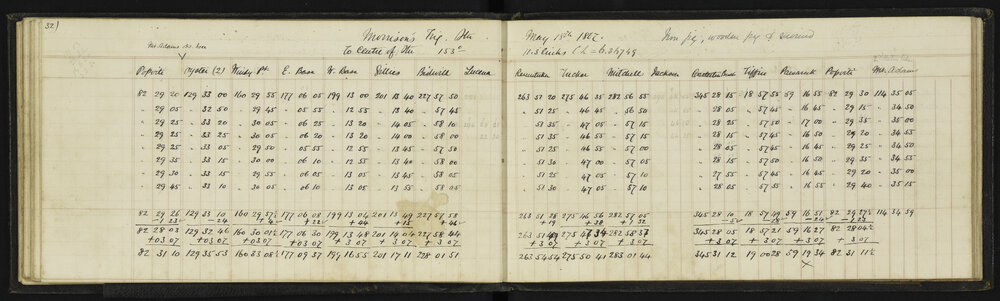 32)
Morrison's Trig. Stn May 18th 1887. Iron peg, wooden peg &
to Centre of Stn 153°
Mt Adams
Popoti Oyster (2) Windy Pt. E. Base W. Base Gillies Bidwell Lucena Tucker Mitchell Jackson Tiffin Popoti Mt. Adams
82 29 20 129 33 00 160 29 55 177 06 05 199 13 00 201 13 40 227 57 50 263 51 20 275 46 55 282 56 55 345 28 15 18 57 55 59 16 55 82 29 30 114 35 05
" 29 05 " 32 50 " 29 45 " 05 55 " 12 55 " 13 40 " 57 45 " 51 25 " 46 45 " 56 50 " 28 05 " 57 45 " 16 45 " 29 15 " 34 50
" 29 25 " 33 20 " 30 05 " 06 25 " 13 20 " 14 05 " 58 10 " 51 35 " 47 05 " 57 15 " 28 25 " 57 50 " 17 00 " 29 35 " 35 00
" 29 25 " 33 25 " 30 05 " 06 20 " 13 20 " 14 00 " 58 00 " 51 35 " 46 55 " 57 10 " 28 05 " 57 45 " 16 50 " 29 20 " 34 55
" 29 25 " 33 05 " 29 50 " 05 55 " 12 55 " 13 45 " 57 50 " 51 25 " 46 45 " 56 55 " 28 05 " 57 45 " 16 45 " 29 25 " 34 50
" 29 35 " 33 15 " 30 00 " 06 10 " 12 55 " 13 40 " 58 00 " 51 30 " 47 00 " 57 05 " 28 15 " 57 50 " 16 50 " 29 35 " 34 55
" 29 30 " 33 15 " 29 55 " 06 05 " 13 05 " 13 45 " 58 05 " 51 25 " 47 05 " 57 10 " 27 55 " 57 45 " 16 45 " 29 20 " 35 00
" 29 45 " 33 10 " 30 05 " 06 10 " 13 05 " 13 55 " 58 05 " 51 30 " 47 05 " 57 10 " 28 05 " 57 55 " 16 55 " 29 40 " 35 15
82 29 26 129 33 10 160 29 57½ 177 06 08 199 13 04 201 13 49 227 57 58 263 51 28 275 46 56 282 57 05 345 28 10 18 57 49 59 16 51 82 29 27½ 114 34 59
-1 23 -24 +4 +22 +44 +15 +46 +19 +38 +1 32 -24
82 28 03 129 32 46 160 30 01½ 177 06 30 199 13 48 201 14 04 227 58 44 263 51 47 275 47 34 282 58 37 345 28 05 18 57 21 59 16 27 82 28 04½
+3 07 +3 07 +3 07 +3 07 +3 07 +3 07 +3 07 +3 07 +3 07 +3 07 +3 07 +3 07 +3 07 +3 07
82 31 10 129 35 53 160 33 08½ 177 09 37 199 16 55 201 17 11 228 01 51 263 54 54 275 50 41 283 01 44 345 31 12 19 00 28 59 19 34 82 31 11½
×